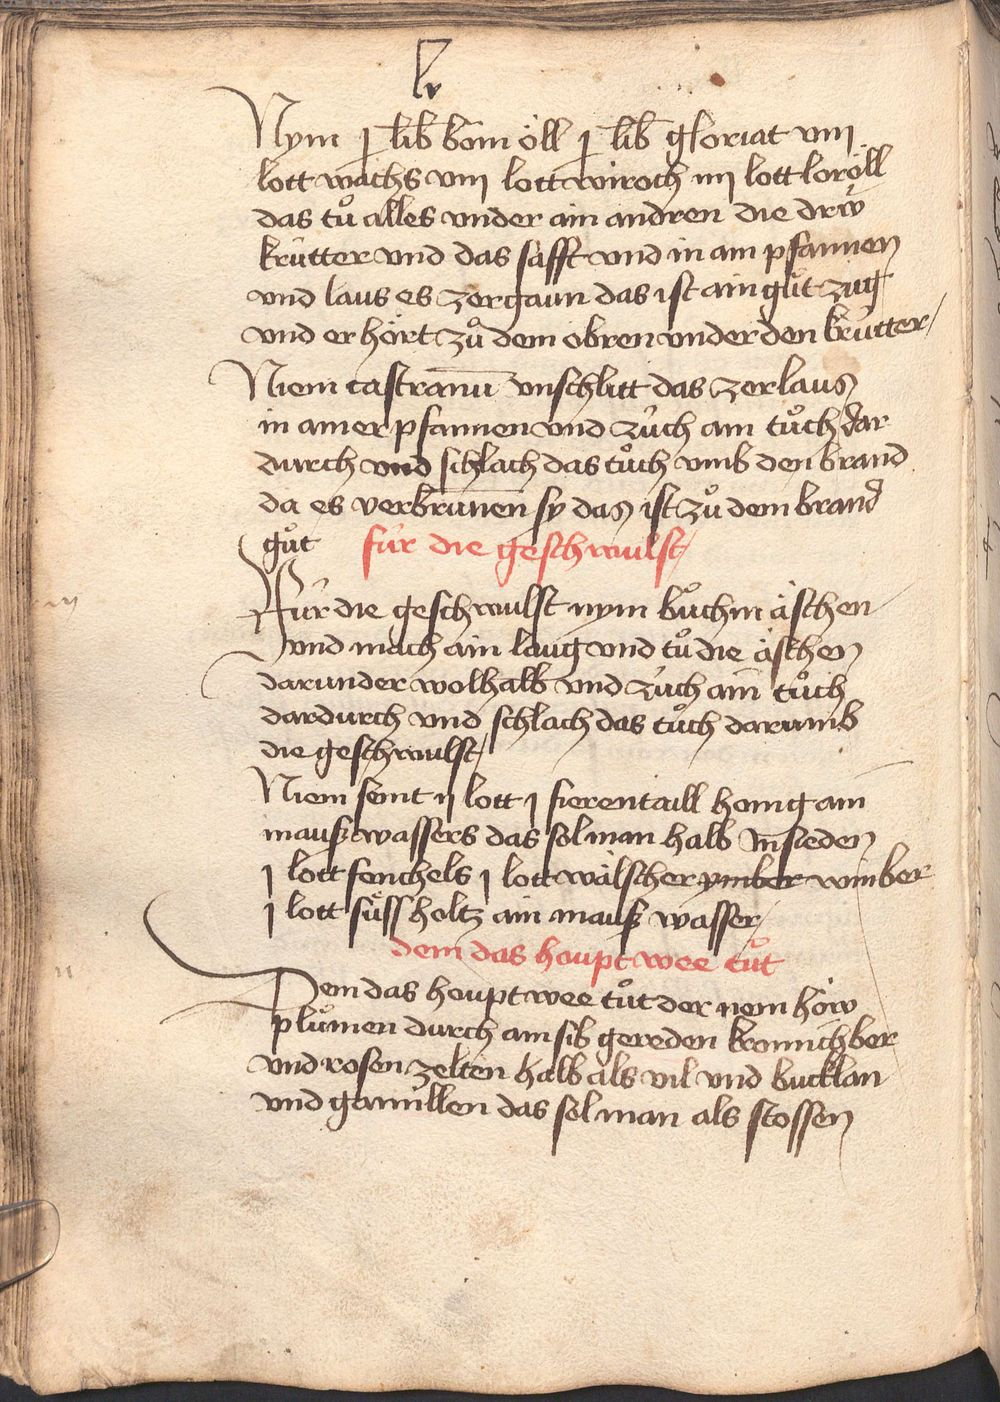 lv
Nym j lib bom öll j lib gloriat viij
lott wachs viij lott wiroch iiij lott loröll
das tů alles vnder ain andren die drw̓
krütter vnd das safft vnd in ain pfannen
vnd laus es zergaun das ist ain gůt zug
vnd er hört zů dem obren vnder den krütter /
Niem castranū vnschlitt das zerlaus
in ainer pfannen vnd züch ain tůch dar
durch vnd schlach das tůch vmb den brand
da es verbrūnen sy das ist zů dem brand
gůt für die geschwulst /
Für die geschwulst nym bůchin äschen
vnd mach ain laug vnd tů die äschen
darunder wol halb vnd züch ain̄ tůch
dardurch vnd schlach das tůch darumb
die geschwulst /
Niem senit ij lott j fierentaill honig ain
mauß wassers das sol man halb in sieden
j lott fenchels j lott wälscher ymber wimber
j lott süss holtz ain mauß wasser /
dem das houpt wee tůt
Dem das houpt wee tůt der nem höw
plůmen durch ain sib gereden kronnichber
vnd rosen zelten halb als vil vnd bucklan
vnd gamillen das sol man als stossen